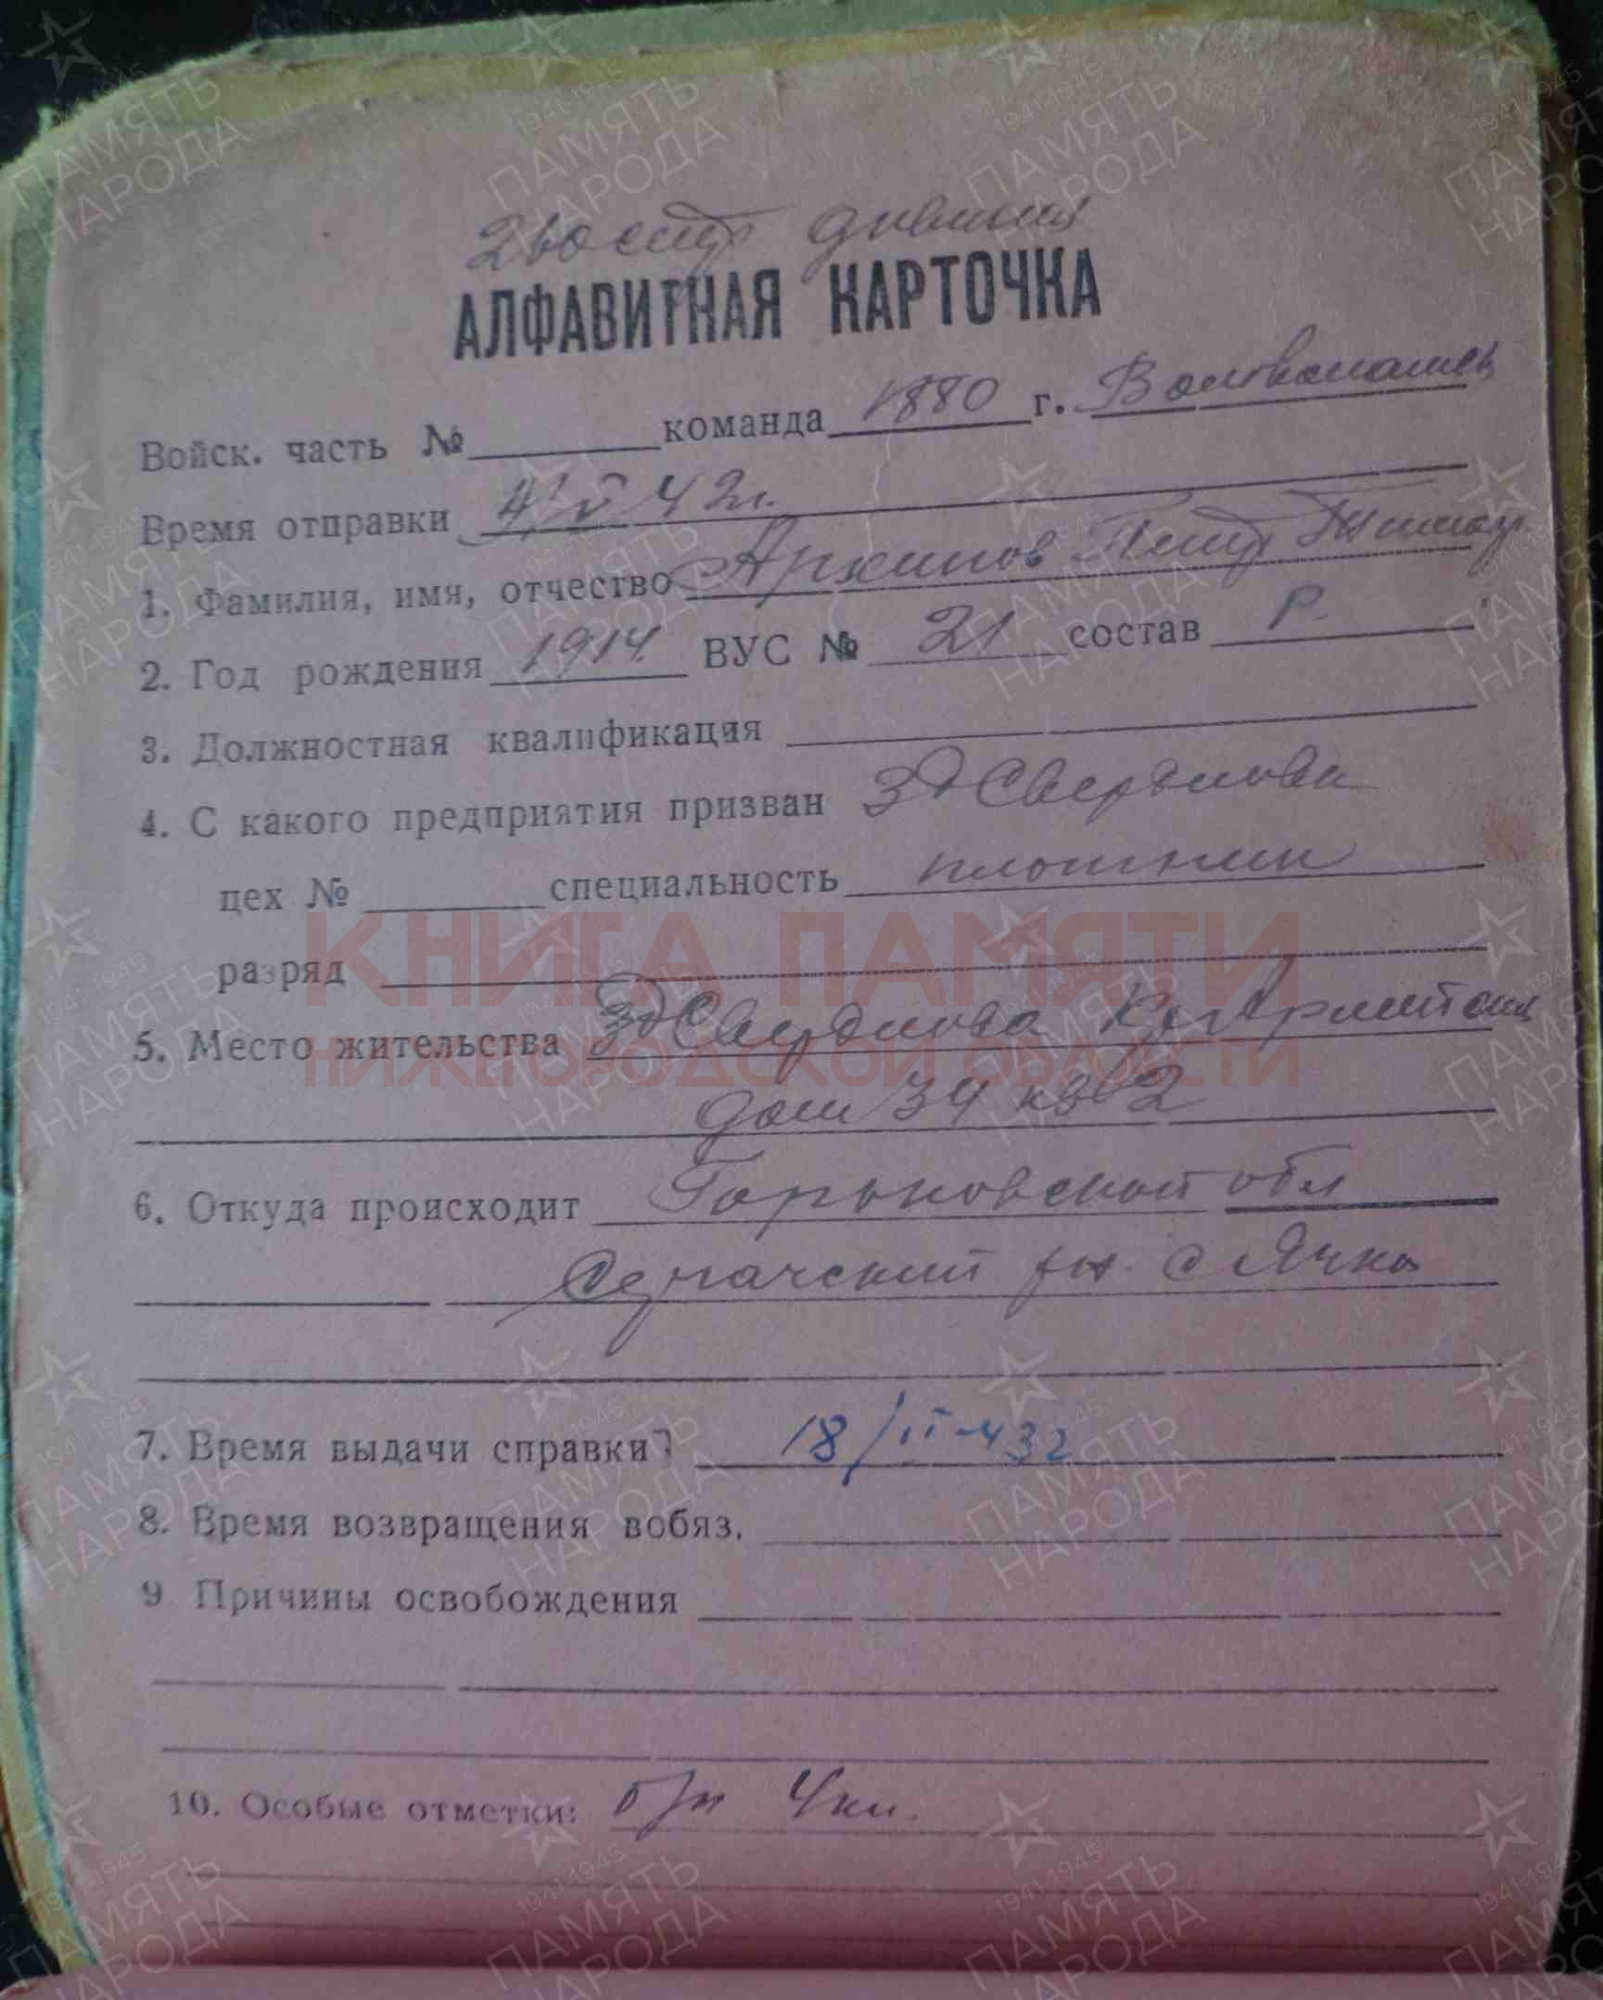 АЛФАВИТНАЯ КАРТОЧКА
Войск. часть № команда 1880 г.
Время отправки 4/V 42г.
1. Фамилия, имя, отчество Архипов Петр
2. Год рождения 1914. ВУС № 21 состав Р.
3. Должностная квалификация
4. С какого предприятия призван Зд Свердлова
цех № специальность плотник
разряд
5. Место жительства Зд Свердлова Кр Армейская
дом 34 кв 2
6. Откуда происходит Горьковской обл
Сергачский рн. с Ачка
7. Время выдачи справки 18/II-43г
8. Время возвращения вобяз.
9 Причины освобождения
10. Особые отметки: б/п 4кл.
КНИГА ПАМЯТИ
НИЖЕГОРОДСКОЙ ОБЛАСТИ
ПАМЯТЬ
НАРОДА
1941-1945